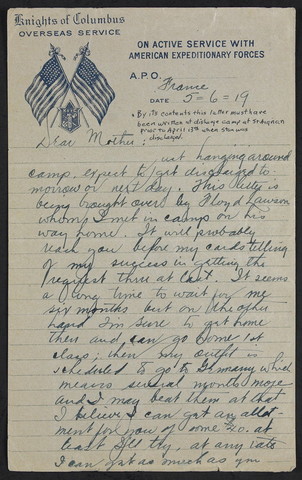 Knights of Columbus
OVERSEAS SERVICE
ON ACTIVE SERVICE WITH
AMERICAN EXPEDITIONARY FORCES
A.P.O.
France
DATE 5-6-19
* By its contents this letter must have
been written at discharge camp at St. Aignan
prior to April 13th when Stan was
discharged.
Dear Mother;
Just hanging around
camp, expect to get discharged to
morrow or next day. This letter is
being brought over by Floyd Lawson
whom I met in camp on his
way home. It will probably
reach you before my cards telling
of my success in getting the
request thru at last. It seems
a long time to wait for me
six months but on the other
hand I'm sure to get home
then and can go home 1st
class; then my outfit is
scheduled to go to Germany which
means several months more
and I may beat them at that
I believe I can get an allot-
ment for you of some 20. at
least I'll try, at any rate
I can get as much as you